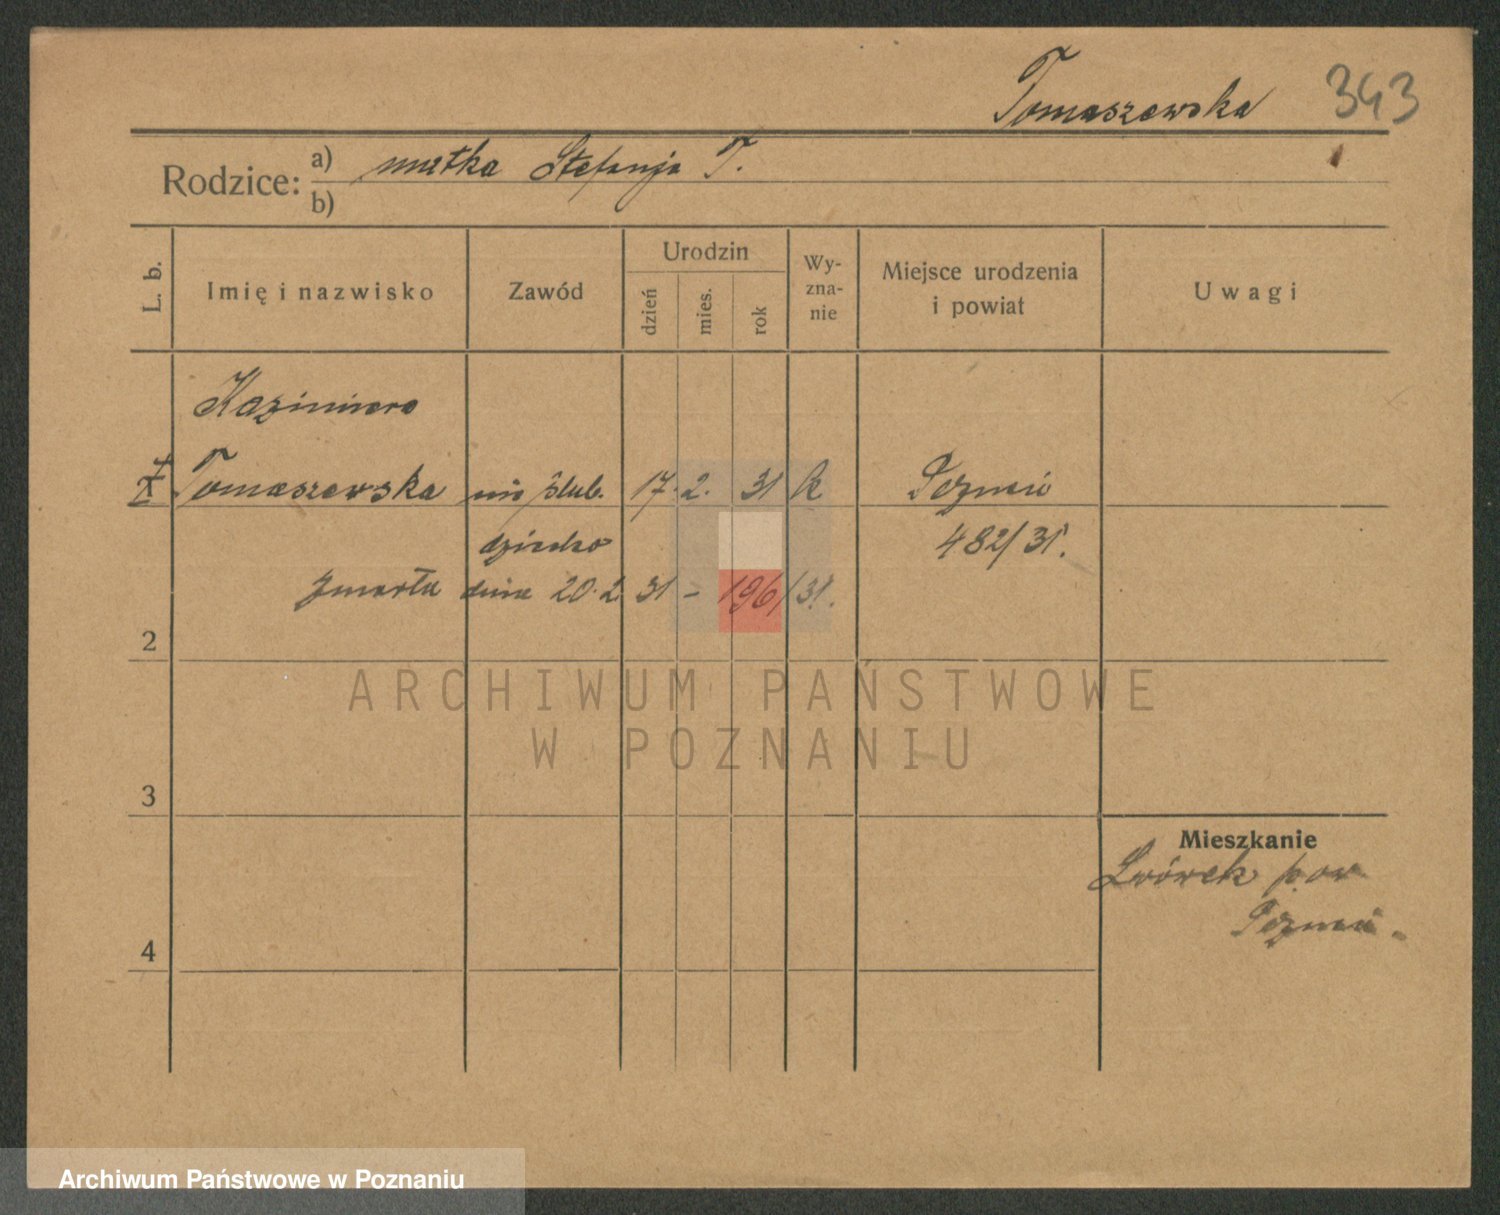 Tomaszewska 343
Rodzice: a) matka Stefanja T.
b)
L. b. Imię i nazwisko Zawód Urodzin dzień mies. rok Wy-zna-nie Miejsce urodzenia i powiat Uwagi
Kazimiera
Tomaszewska nie ślub. 17. 2. 31 k Poznań
dziecko 482/31.
zmarła dnia 20.2.31 - 196/31.
2
ARCHIWUM PAŃSTWOWE
W POZNANIU
3
Mieszkanie
Lwówek pow
Poznań.
4
Archiwum Państwowe w Poznaniu